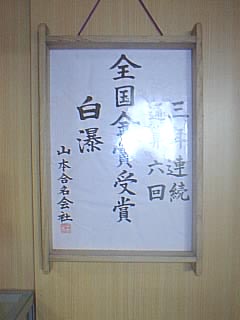 三年連続
通算六回
全国金賞受賞
白瀑
山本合名会社